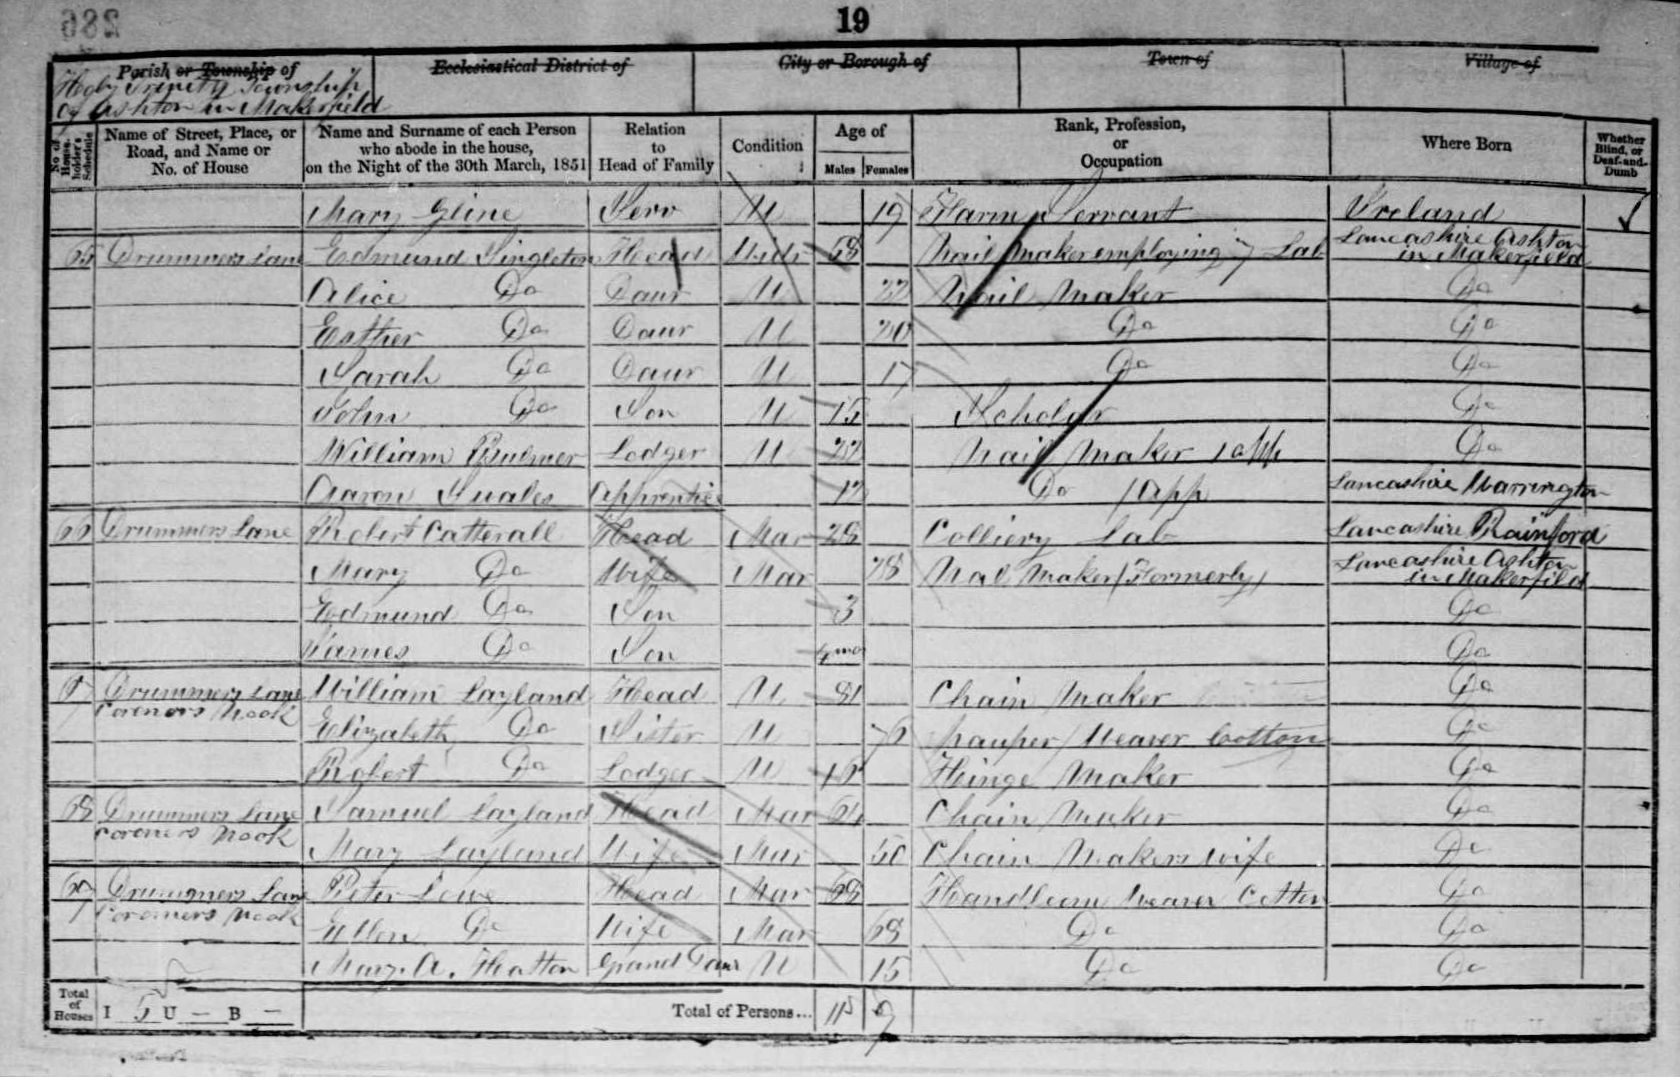 286
19
Parish or Township of
Ecclesiastical District of
City or Borough of
Town of
Village of
Holy Trinity Township
of Ashton in Makerfield
No. of House-holder's Schedule
Name of Street, Place, or Road, and Name or No. of House
Name and Surname of each Person who abode in the house, on the Night of the 30th March, 1851
Relation to Head of Family
Condition
Age of
Males
Females
Rank, Profession, or Occupation
Where Born
Whether Blind, or Deaf-and-Dumb
Mary Gline Serv U 19 Farm Servant Ireland
65 Drummers Lane Edmund Singleton Head Widr 58 Nail Maker employing 7 Lab Lancashire Ashton in Makerfield
Alice Do Daur U 22 Nail Maker Do
Esther Do Daur U 20 Do Do
Sarah Do Daur U 17 Do Do
John Do Son U 15 Scholar Do
William Bulmer Lodger U 22 Nail Maker Do
Aaron Apprentice 17 Do App Lancashire Warrington
66 Drummers Lane Robert Catterall Head Mar 28 Colliery Lab Lancashire Rainford
Mary Do Wife Mar 28 Nal Maker (Formerly) Lancashire Ashton in Makerfield
Edmund Do Son 3 Do
James Do Son mo Do
67 Drummers Lane William Layland Head U 81 Chain Maker Do
Coroners Nook
Elizabeth Do Sister U 76 pauper / Weaver Cotton Do
Robert Do Lodger U Hinge Maker Do
68 Drummers Lane Samuel Layland Head Mar Chain Maker Do
Coroners Nook
Mary Layland Wife Mar 50 Chain Makers wife Do
69 Drummers Lane Peter Lowe Head Mar 68 Handloom Weaver Cotton Do
Coroners Nook
Ellen Do Wife Mar 68 Do Do
Mary A. Hatton Grand Daur U 15 Do Do
Total of Houses I 5 U — B —
Total of Persons... 11 9